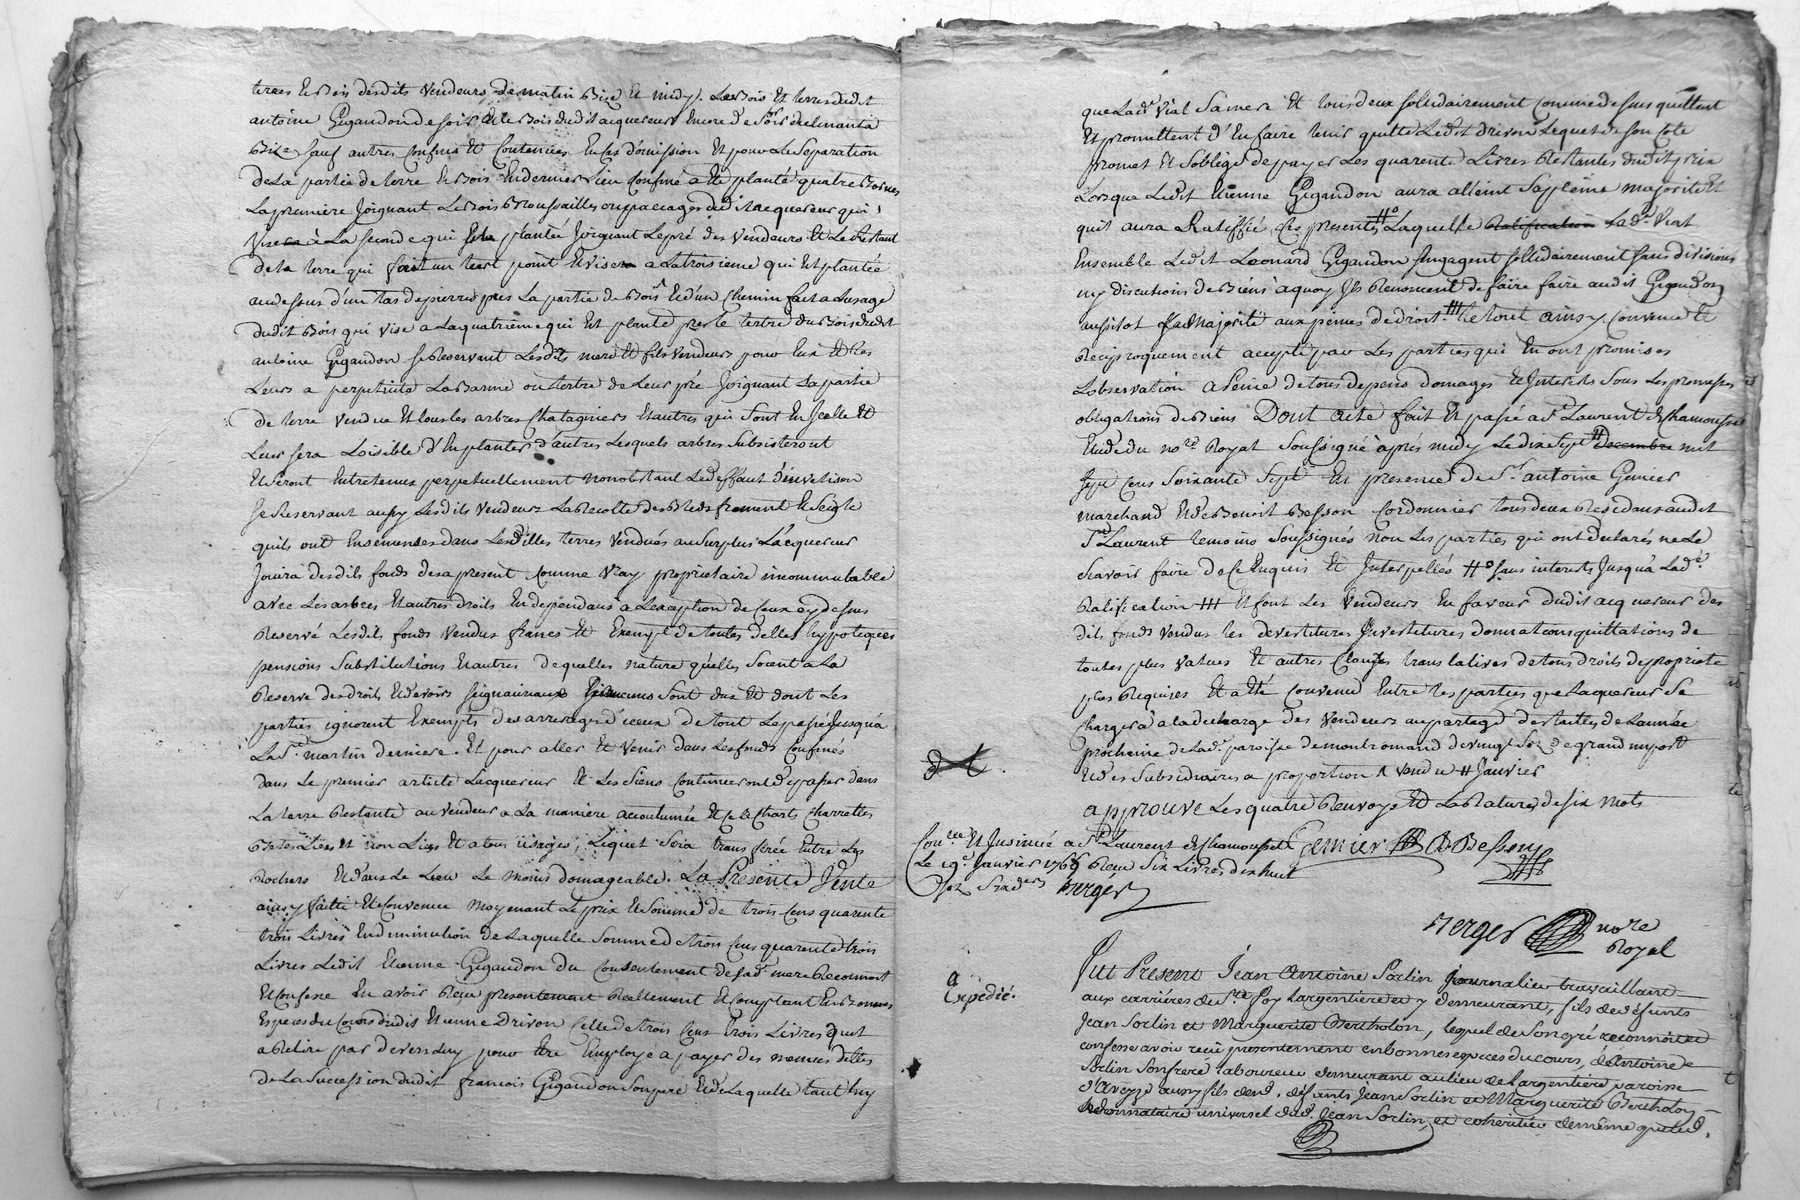 terres et bois desdits vendeurs de matin bize et midy. Les bois et terres dudit
antoine Gigandon de soir et le bois dudit acquereur encore de soir declinant a
bize sauf autres confins et contenües en cas d'omission et pour la Separation
de la partie de terre et bois en dernier lieu confiné a eté planté quatre bornes
La premiere Joignant Le bois broussailles ou paccages dudit acquereur qui
vise a La seconde qui est plantée Joignant Le pré des vendeurs et Le restant
de la terre qui fait un tiers point et vise a La troisieme qui est plantée
au dessus d'un tas de pierres pres La partie de bois et d'un chemin fait a Lusage
dudit bois qui vise a La quatrieme qui est planté pres le tertre du bois dudit
antoine Gigandon se reservant Lesdits mere et fils vendeurs pour eux et les
Leurs a perpetuité La barme ou tertre de Leur pré Joignant La partie
de terre vendue et tous les arbres chataigniers et autres qui sont en Icelle et
Leur sera Loisible d'en planter d'autres Lesquels arbres subsisteront
et seront entretenus perpetuellement nonobstant Le deffaut d'invetison
se reservant aussy Lesdits vendeurs La recolte des bleds froment et seigle
quils ont ensemencés dans Lesdittes terres vendües au surplus L'acquereur
Jouira desdits fonds des a present comme vray proprietaire incommutable
avec Les arbres et autres droits en dependans a L'exception de ceux cy dessus
reservé Lesdits fonds vendus francs et exempt de toutes dettes hypoteques
pensions substitutions et autres de quelles nature quelles soient a La
reserve des droits et devoirs seigneuriaux si aucuns sont dus et dont Les
parties ignorent exempts des arrerages d'iceux de tout Le passé Jusqu'a
La St martin derniere. Et pour aller et venir dans Les fonds confinés
dans Le premier article Lacquereur et Les siens continueront de passer dans
La terre restante au vendeur a La maniere accoutumée et ce a chars charrettes
betes Liens et non Liens et a tous usages; Liquet sera transferée entre Les
rochers et dans Le Lieu Le moins domageable. La Presente Vente
ainsy faitte et convenue moyenant Le prix et somme de trois cens quarente
trois Livres en diminution de Laquelle somme de trois cens quarente trois
Livres Ledit etienne Gigandon du consentement de sad. mere reconnoit
et confesse en avoir recu presentement reellement et comptant en bonnes
especes du cours dudit etienne Drivon celle de trois cens trois Livres quit
a retiré par devers Luy pour être employé a payer des memes dettes
de La succession dudit francois Gigandon son pere et de Laquelle tant Luy
que Lad. vial sa mere et tous deux sollidairement comme dessus quittent
et promettent d'en faire tenir quitte Ledit drivon Lequel de son coté
promet et s'oblige de payer Les quarente Livres restantes dudit prix
Lorsque Ledit etienne Gigandon aura atteint sa pleine majorité et
quil aura ratiffié ces presentes #° Laquelle ratification Lad. vial
ensemble Ledit Leonard Gigandon sengagent sollidairement sans divisions
ny discutions de biens a quoy ils renoncent de faire faire audit Gigandon
aussitot sa majorité aux peines de droit. ### Le tout ainsy convenu et
reciproquement accepté par Les parties qui en ont promises
Lobservation a peine de tous depens domages et Interets sous Les promesses
obligations de biens Dont acte fait et passé a St Laurent de chamousset
etude du nore. Royal soussigné aprés midy Le dix sept # decembre mil
sept cens soixante sept en presence de Sr. antoine Gemier
marchand et de benoit besson cordonnier tous deux residans audit
St Laurent temoins soussignés non Les parties qui ont declarés ne Le
scavoir faire de ce enquis et Interpellés #° sans interets Jusqu'a Lad.
ratification ### et font Les vendeurs en faveur dudit acquereur des
dits fonds vendus les devestitures Investitures donnations quittations de
toutes plus values et autres clauses translatives de tous droits de proprieté
plus requises et a eté convenu entre les parties que Laquereur se
chargera a la decharge des vendeurs au partage des tailles de Lannée
prochaine de Lad. paroisse de montromand de vingt sols de grand import
et des subsidiaires a proportion \ vendu # Janvier
approuvé Les quatre renvoys et La rature de six mots
Gemier B Besson
Conlle et Insinué a St Laurent de chamousset
Le 19e Janvier 1768 Recu Six Livres dix huit
sols six ders Verger
Verger nore
Royal
Expedié.
Fut Present Jean Antoine Sorlin Journalier travaillant
aux carrieres de Ste foy Largentiere et y demeurant, fils de défunts
Jean Sorlin et Marguerite Bertholon, lequel de son gré reconnoit et
confesse avoir recü presentement en bonnes especes du cours, d'Antoine
Sorlin son frere laboureur demeurant au lieu de Largentiere paroisse
d'Aveyze aussy fils desd. défunts Jean Sorlin et Marguerite Bertholon
donnataire universel dud. Jean Sorlin, et coheritier de même que led.